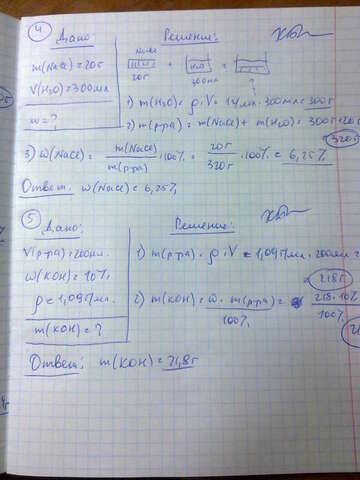 ④ Дано
Решение:
m(NaCl) = 20г
V(H₂O) = 300мл
w = ?
NaCl
20г
+
300мл
=
?
1) m(H₂O) = ρ·V = 1г/мл · 300мл = 300г
2) m(р-ра) = m(NaCl) + m(H₂O) = 300г + 20г
320г
3) w(NaCl) = m(NaCl) / m(р-ра) · 100% = 20г / 320г · 100% = 6,25%
Ответ: w(NaCl) = 6,25%
⑤ Дано:
Решение:
V(р-ра) = 200мл.
w(KOH) = 10%
ρ = 1,09г/мл.
m(KOH) = ?
1) m(р-ра) = ρ · V = 1,09г/мл · 200мл =
= 218г
2) m(KOH) = w · m(р-ра) / 100% = 218 · 10% / 100%
Ответ: m(KOH) = 21,8г